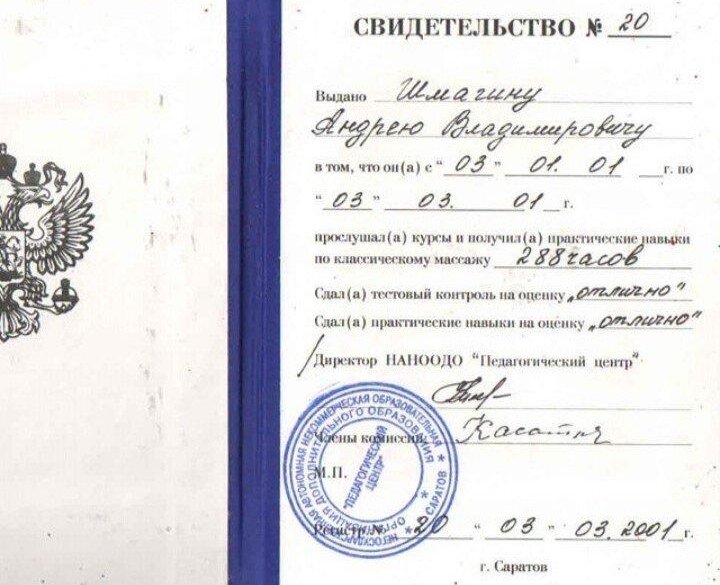 СВИДЕТЕЛЬСТВО № 20
Выдано Шмагину
Андрею Владимировичу
в том, что он(а) с “ 03 ” 01. 01 г. по
“ 03 ” 03. 01 г.
прослушал(а) курсы и получил(а) практические навыки
по классическому массажу 288 часов
Сдал(а) тестовый контроль на оценку „отлично“
Сдал(а) практические навыки на оценку „отлично“
Директор НАНООДО “Педагогический центр”
Члены комиссии:
М.П.
НЕГОСУДАРСТВЕННАЯ АВТОНОМНАЯ НЕКОММЕРЧЕСКАЯ ОБРАЗОВАТЕЛЬНАЯ
ОРГАНИЗАЦИЯ ДОПОЛНИТЕЛЬНОГО ОБРАЗОВАНИЯ
"ПЕДАГОГИЧЕСКИЙ
ЦЕНТР"
* САРАТОВ *
Регистр. № 20 “ 03 ” 03. 2001 г.
г. Саратов